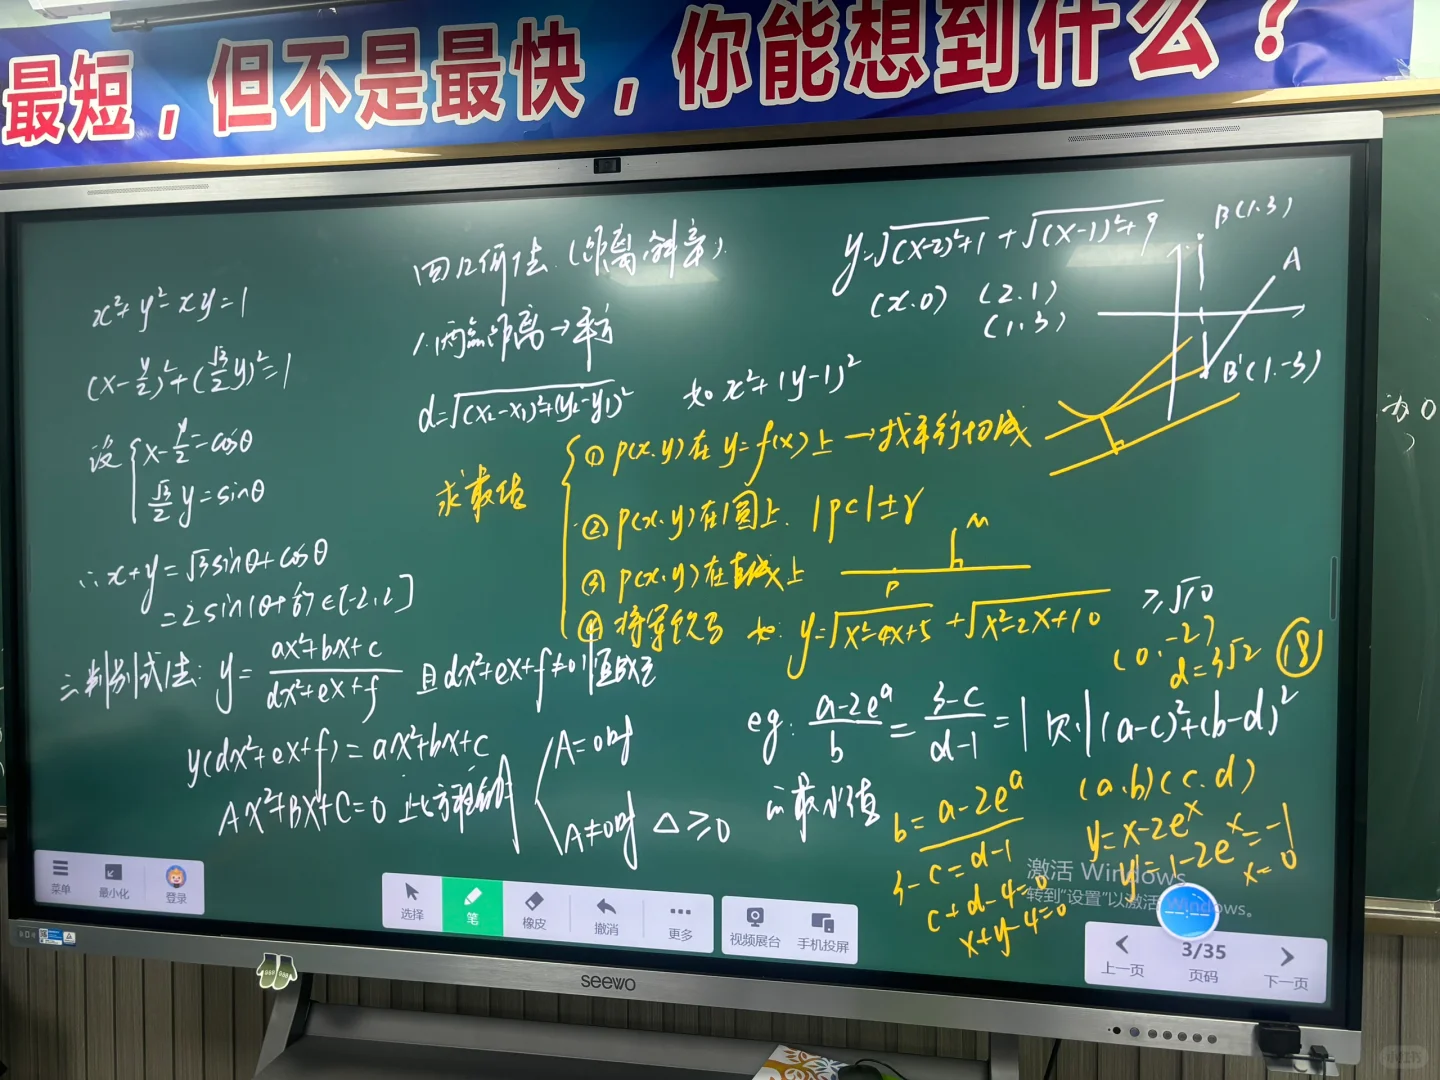 最短，但不是最快，你能想到什么？
x²+y²-xy=1
(x-y/2)²+(√3/2 y)²=1
设 { x-y/2=cosθ
√3/2 y=sinθ
∴x+y=√3sinθ+cosθ
=2sin(θ+π/6)∈[-2,2]
三.判别式法: y=(ax²+bx+c)/(dx²+ex+f) 且dx²+ex+f≠0恒成立
y(dx²+ex+f)=ax²+bx+c
Ax²+Bx+C=0 此方程有解
A=0时
A≠0时 △≥0
四几何法.(距离,斜率).
1.两点距离→平方
d=√((x₂-x₁)²+(y₂-y₁)²) 如 x²+(y-1)²
求最值
① p(x.y)在 y=f(x)上→找平行切线
② p(x.y)在圆上. |pc|±r
③ p(x.y)在直线上
M
P
④ 将军饮马 如: y=√(x²-4x+5)+√(x²-2x+10) ≥√10
y=√((x-2)²+1)+√((x-1)²+9)
(x.0) (2.1)
(1.3)
B(1.3)
A
B'(1.-3)
(0.-2)
d=3√2 (18)
eg: (a-2eᵃ)/b=(3-c)/(d-1)=1 则(a-c)²+(b-d)²
的最小值
b=a-2eᵃ
3-c=d-1
c+d-4=0
x+y-4=0
(a.b)(c.d)
y=x-2eˣ
y'=1-2eˣ=-1
x=0
为0
激活 Windows
转到"设置"以激活 Windows。
菜单 最小化 登录
选择 笔 橡皮 撤消 更多
视频展台 手机投屏
上一页 3/35 页码 下一页
seewo